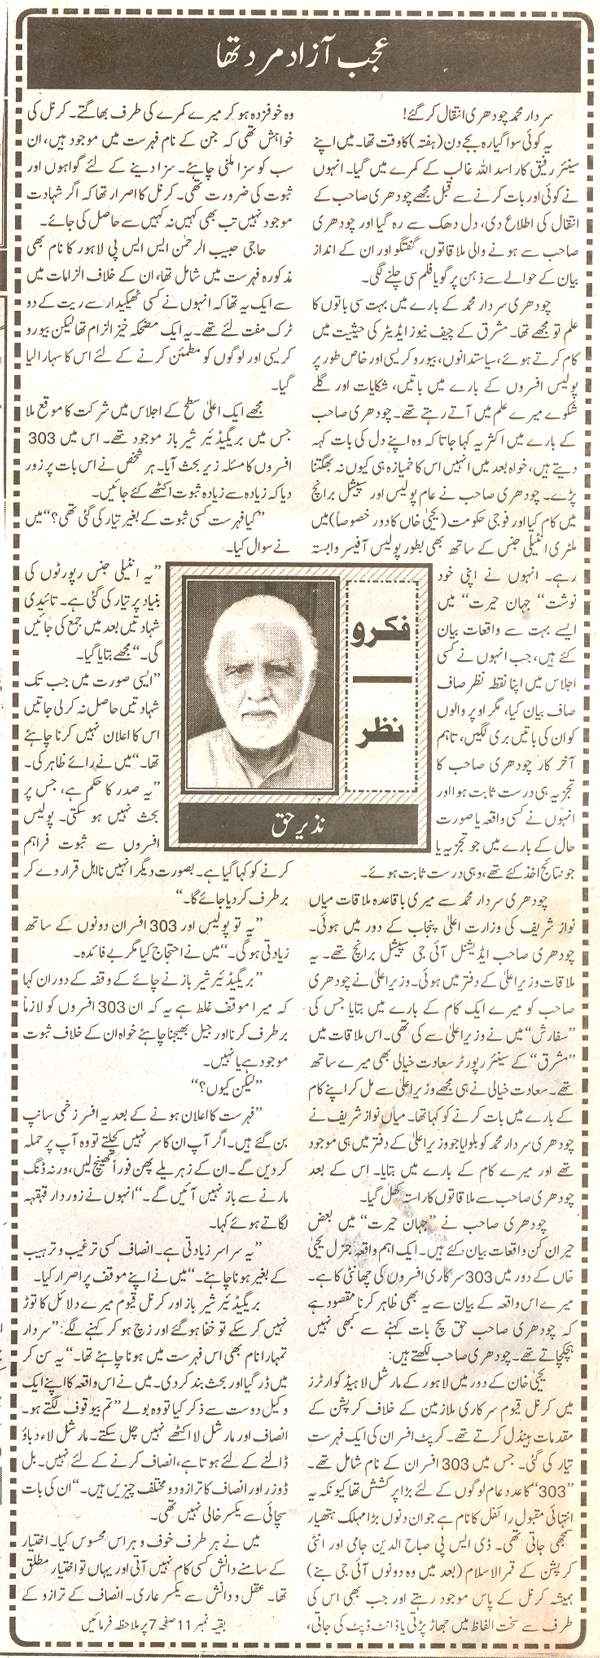 عجب آزاد مرد تھا
سردار محمد چودھری انتقال کر گئے!
یہ کوئی سوا گیارہ بجے دن (ہفتہ) کا وقت تھا۔ میں اپنے
سینئر رفیق کار اسد اللہ غالب کے کمرے میں گیا۔ انہوں
نے کوئی اور بات کرنے سے قبل مجھے چودھری صاحب کے
انتقال کی اطلاع دی، دل دھک سے رہ گیا اور چودھری
صاحب سے ہونے والی ملاقاتوں، گفتگو اور ان کے انداز
بیان کے حوالے سے ذہن پر گویا فلم سی چلنے لگی۔
چودھری سردار محمد کے بارے میں بہت سی باتوں کا
علم تو مجھے تھا۔ مشرق کے چیف نیوز ایڈیٹر کی حیثیت میں
کام کرتے ہوئے، سیاستدانوں، بیوروکریسی اور خاص طور پر
پولیس افسروں کے بارے میں باتیں، شکایات اور گلے
شکوے میرے علم میں آتے رہتے تھے۔ چودھری صاحب
کے بارے میں اکثر یہ کہا جاتا کہ وہ اپنے دل کی بات کہہ
دیتے ہیں، خواہ بعد میں انہیں اس کا خمیازہ ہی کیوں نہ بھگتنا
پڑے۔ چودھری صاحب نے عام پولیس اور سپیشل برانچ
میں کام کیا اور فوجی حکومت (یحییٰ خاں کا دور خصوصاً) میں
ملٹری انٹیلی جنس کے ساتھ بھی بطور پولیس آفیسر وابستہ
رہے۔ انہوں نے اپنی خود
نوشت ’’جہان حیرت‘‘ میں
ایسے بہت سے واقعات بیان
کئے ہیں، جب انہوں نے کسی
اجلاس میں اپنا نقطہ نظر صاف
صاف بیان کیا، مگر اوپر والوں
کو ان کی باتیں بری لگیں، تاہم
آخر کار چودھری صاحب کا
تجزیہ ہی درست ثابت ہوا اور
انہوں نے کسی واقعہ یا صورت
حال کے بارے میں جو تجزیہ یا
جو نتائج اخذ کئے تھے، وہی درست ثابت ہوئے۔
چودھری سردار محمد سے میری باقاعدہ ملاقات میاں
نواز شریف کی وزارت اعلیٰ پنجاب کے دور میں ہوئی۔
چودھری صاحب ایڈیشنل آئی جی سپیشل برانچ تھے۔ یہ
ملاقات وزیراعلیٰ کے دفتر میں ہوئی۔ وزیراعلیٰ نے چودھری
صاحب کو میرے ایک کام کے بارے میں بتایا جس کی
’’سفارش‘‘ میں نے وزیراعلیٰ سے کی تھی۔ اس ملاقات میں
’’مشرق‘‘ کے سینئر رپورٹر سعادت خیالی بھی میرے ساتھ
تھے۔ سعادت خیالی نے ہی مجھے وزیراعلیٰ سے مل کر اپنے کام
کے بارے میں بات کرنے کو کہا تھا۔ میاں نواز شریف نے
چودھری سردار محمد کو بلوایا جو وزیراعلیٰ کے دفتر میں ہی موجود
تھے اور میرے کام کے بارے میں بتایا۔ اس کے بعد
چودھری صاحب سے ملاقاتوں کا راستہ کھل گیا۔
چودھری صاحب نے ’’جہان حیرت‘‘ میں بعض
حیران کن واقعات بیان کئے ہیں۔ ایک اہم واقعہ جنرل یحییٰ
خاں کے دور میں 303 سرکاری افسروں کی چھانٹی کا ہے۔
میرے اس واقعہ کے بیان سے یہ بھی ظاہر کرنا مقصود ہے
کہ چودھری صاحب حق سچ بات کہنے سے کبھی نہیں
ہچکچاتے تھے۔ چودھری صاحب لکھتے ہیں:
یحییٰ خان کے دور میں لاہور کے مارشل لا ہیڈ کوارٹرز
میں کرنل قیوم سرکاری ملازمین کے خلاف کرپشن کے
مقدمات ہینڈل کرتے تھے۔ کرپٹ افسران کی ایک فہرست
تیار کی گئی۔ جس میں 303 افسران کے نام شامل تھے۔
’’303‘‘ کا عدد عام لوگوں کے لئے بڑا پرکشش تھا کیونکہ یہ
انتہائی مقبول رائفل کا نام ہے جو ان دنوں بڑا مہلک ہتھیار
سمجھی جاتی تھی۔ ڈی ایس پی صباح الدین جامی اور انٹی
کرپشن کے قمر الاسلام (بعد میں وہ دونوں آئی جی بنے)
ہمیشہ کرنل کے پاس موجود رہتے اور جب بھی اس کی
طرف سے سخت الفاظ میں جھاڑ پڑتی یا ڈانٹ ڈپٹ کی جاتی،
وہ خوفزدہ ہو کر میرے کمرے کی طرف بھاگتے۔ کرنل کی
خواہش تھی کہ جن کے نام فہرست میں موجود ہیں، ان
سب کو سزا ملنی چاہئے۔ سزا دینے کے لئے گواہوں اور
ثبوت کی ضرورت تھی۔ کرنل کا اصرار تھا کہ اگر شہادت
موجود نہیں تب بھی کہیں نہ کہیں سے حاصل کی جائے۔
حاجی حبیب الرحمٰن ایس ایس پی لاہور کا نام بھی
مذکورہ فہرست میں شامل تھا، ان کے خلاف الزامات میں
سے ایک یہ تھا کہ انہوں نے کسی ٹھیکیدار سے ریت کے دو
ٹرک مفت لئے تھے۔ یہ ایک مضحکہ خیز الزام تھا لیکن بیورو
کریسی اور لوگوں کو مطمئن کرنے کے لئے اس کا سہارا لیا
گیا۔
مجھے ایک اعلیٰ سطح کے اجلاس میں شرکت کا موقع ملا
جس میں بریگیڈئیر شیر باز موجود تھے۔ اس میں 303
افسروں کا مسئلہ زیر بحث آیا۔ ہر شخص نے اس بات پر زور
دیا کہ زیادہ سے زیادہ ثبوت اکٹھے کئے جائیں۔
’’کیا فہرست کسی ثبوت کے بغیر تیار کی گئی تھی؟‘‘ میں
نے سوال کیا۔
’’یہ انٹیلی جنس رپورٹوں کی
بنیاد پر تیار کی گئی ہے۔ تائیدی
شہادتیں بعد میں جمع کی جائیں
گی۔‘‘ مجھے بتایا گیا۔
’’ایسی صورت میں جب تک
شہادتیں حاصل نہ کر لی جاتیں
اس کا اعلان نہیں کرنا چاہئے
تھا۔‘‘ میں نے رائے ظاہر کی۔
’’یہ صدر کا حکم ہے، جس پر
بحث نہیں ہو سکتی۔ پولیس
افسروں سے ثبوت فراہم
کرنے کو کہا گیا ہے۔ بصورت دیگر انہیں نااہل قرار دے کر
برطرف کر دیا جائے گا۔‘‘
’’یہ تو پولیس اور 303 افسران دونوں کے ساتھ
زیادتی ہو گی۔‘‘ میں نے احتجاج کیا مگر بے فائدہ۔
’’بریگیڈئیر شیر باز نے چائے کے وقفہ کے دوران کہا
کہ میرا موقف غلط ہے یہ کہ ان 303 افسروں کو لازماً
برطرف کرنا اور جیل بھیجنا چاہئے خواہ ان کے خلاف ثبوت
موجود ہے یا نہیں۔
’’لیکن کیوں؟‘‘
’’فہرست کا اعلان ہونے کے بعد یہ افسر زخمی سانپ
بن گئے ہیں۔ اگر آپ ان کا سر نہیں کچلتے تو وہ آپ پر حملہ
کر دیں گے۔ ان کے زہریلے پھن فوراً کھینچ لیں، ورنہ ڈنگ
مارنے سے باز نہیں آئیں گے۔‘‘ انہوں نے زوردار قہقہہ
لگاتے ہوئے کہا۔
’’یہ سراسر زیادتی ہے۔ انصاف کسی ترغیب و ترہیب
کے بغیر ہونا چاہئے۔‘‘ میں نے اپنے موقف پر اصرار کیا۔
بریگیڈئیر شیر باز اور کرنل قیوم میرے دلائل کا توڑ
نہیں کر سکے تو خفا ہو گئے اور زچ ہو کر کہنے لگے: ’’سردار
تمہارا نام بھی اس فہرست میں ہونا چاہئے تھا۔‘‘ یہ سن کر
میں ڈر گیا اور بحث بند کر دی۔ میں نے اس واقعہ کا اپنے ایک
وکیل دوست سے ذکر کیا تو وہ بولے ’’تم بیوقوف لگتے ہو۔
انصاف اور مارشل لا اکٹھے نہیں چل سکتے۔ مارشل لاء دباؤ
ڈالنے کے لئے ہوتا ہے، انصاف کرنے کے لئے نہیں۔ بل
ڈوزر اور انصاف کا ترازو دو مختلف چیزیں ہیں۔‘‘ ان کی بات
سچائی سے یکسر خالی نہیں تھی۔
میں نے ہر طرف خوف و ہراس محسوس کیا۔ اختیار
کے سامنے دانش کسی کام نہیں آتی اور یہاں تو اختیار مطلق
تھا۔ عقل و دانش سے یکسر عاری۔ انصاف کے ترازو کے
بقیہ نمبر 11 صفحہ 7 پر ملاحظہ فرمائیں
فکر و
نظر
نذیر حق